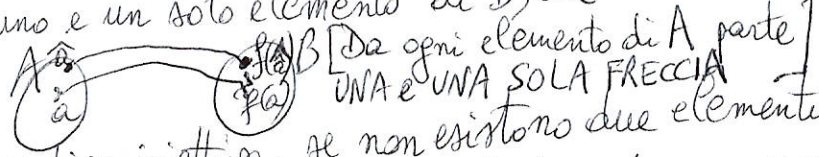 uno e un solo elemento di B, e
A â f(â) B [Da ogni elemento di A parte
a f(a) UNA e UNA SOLA FRECCIA]
se non esistono due elementi